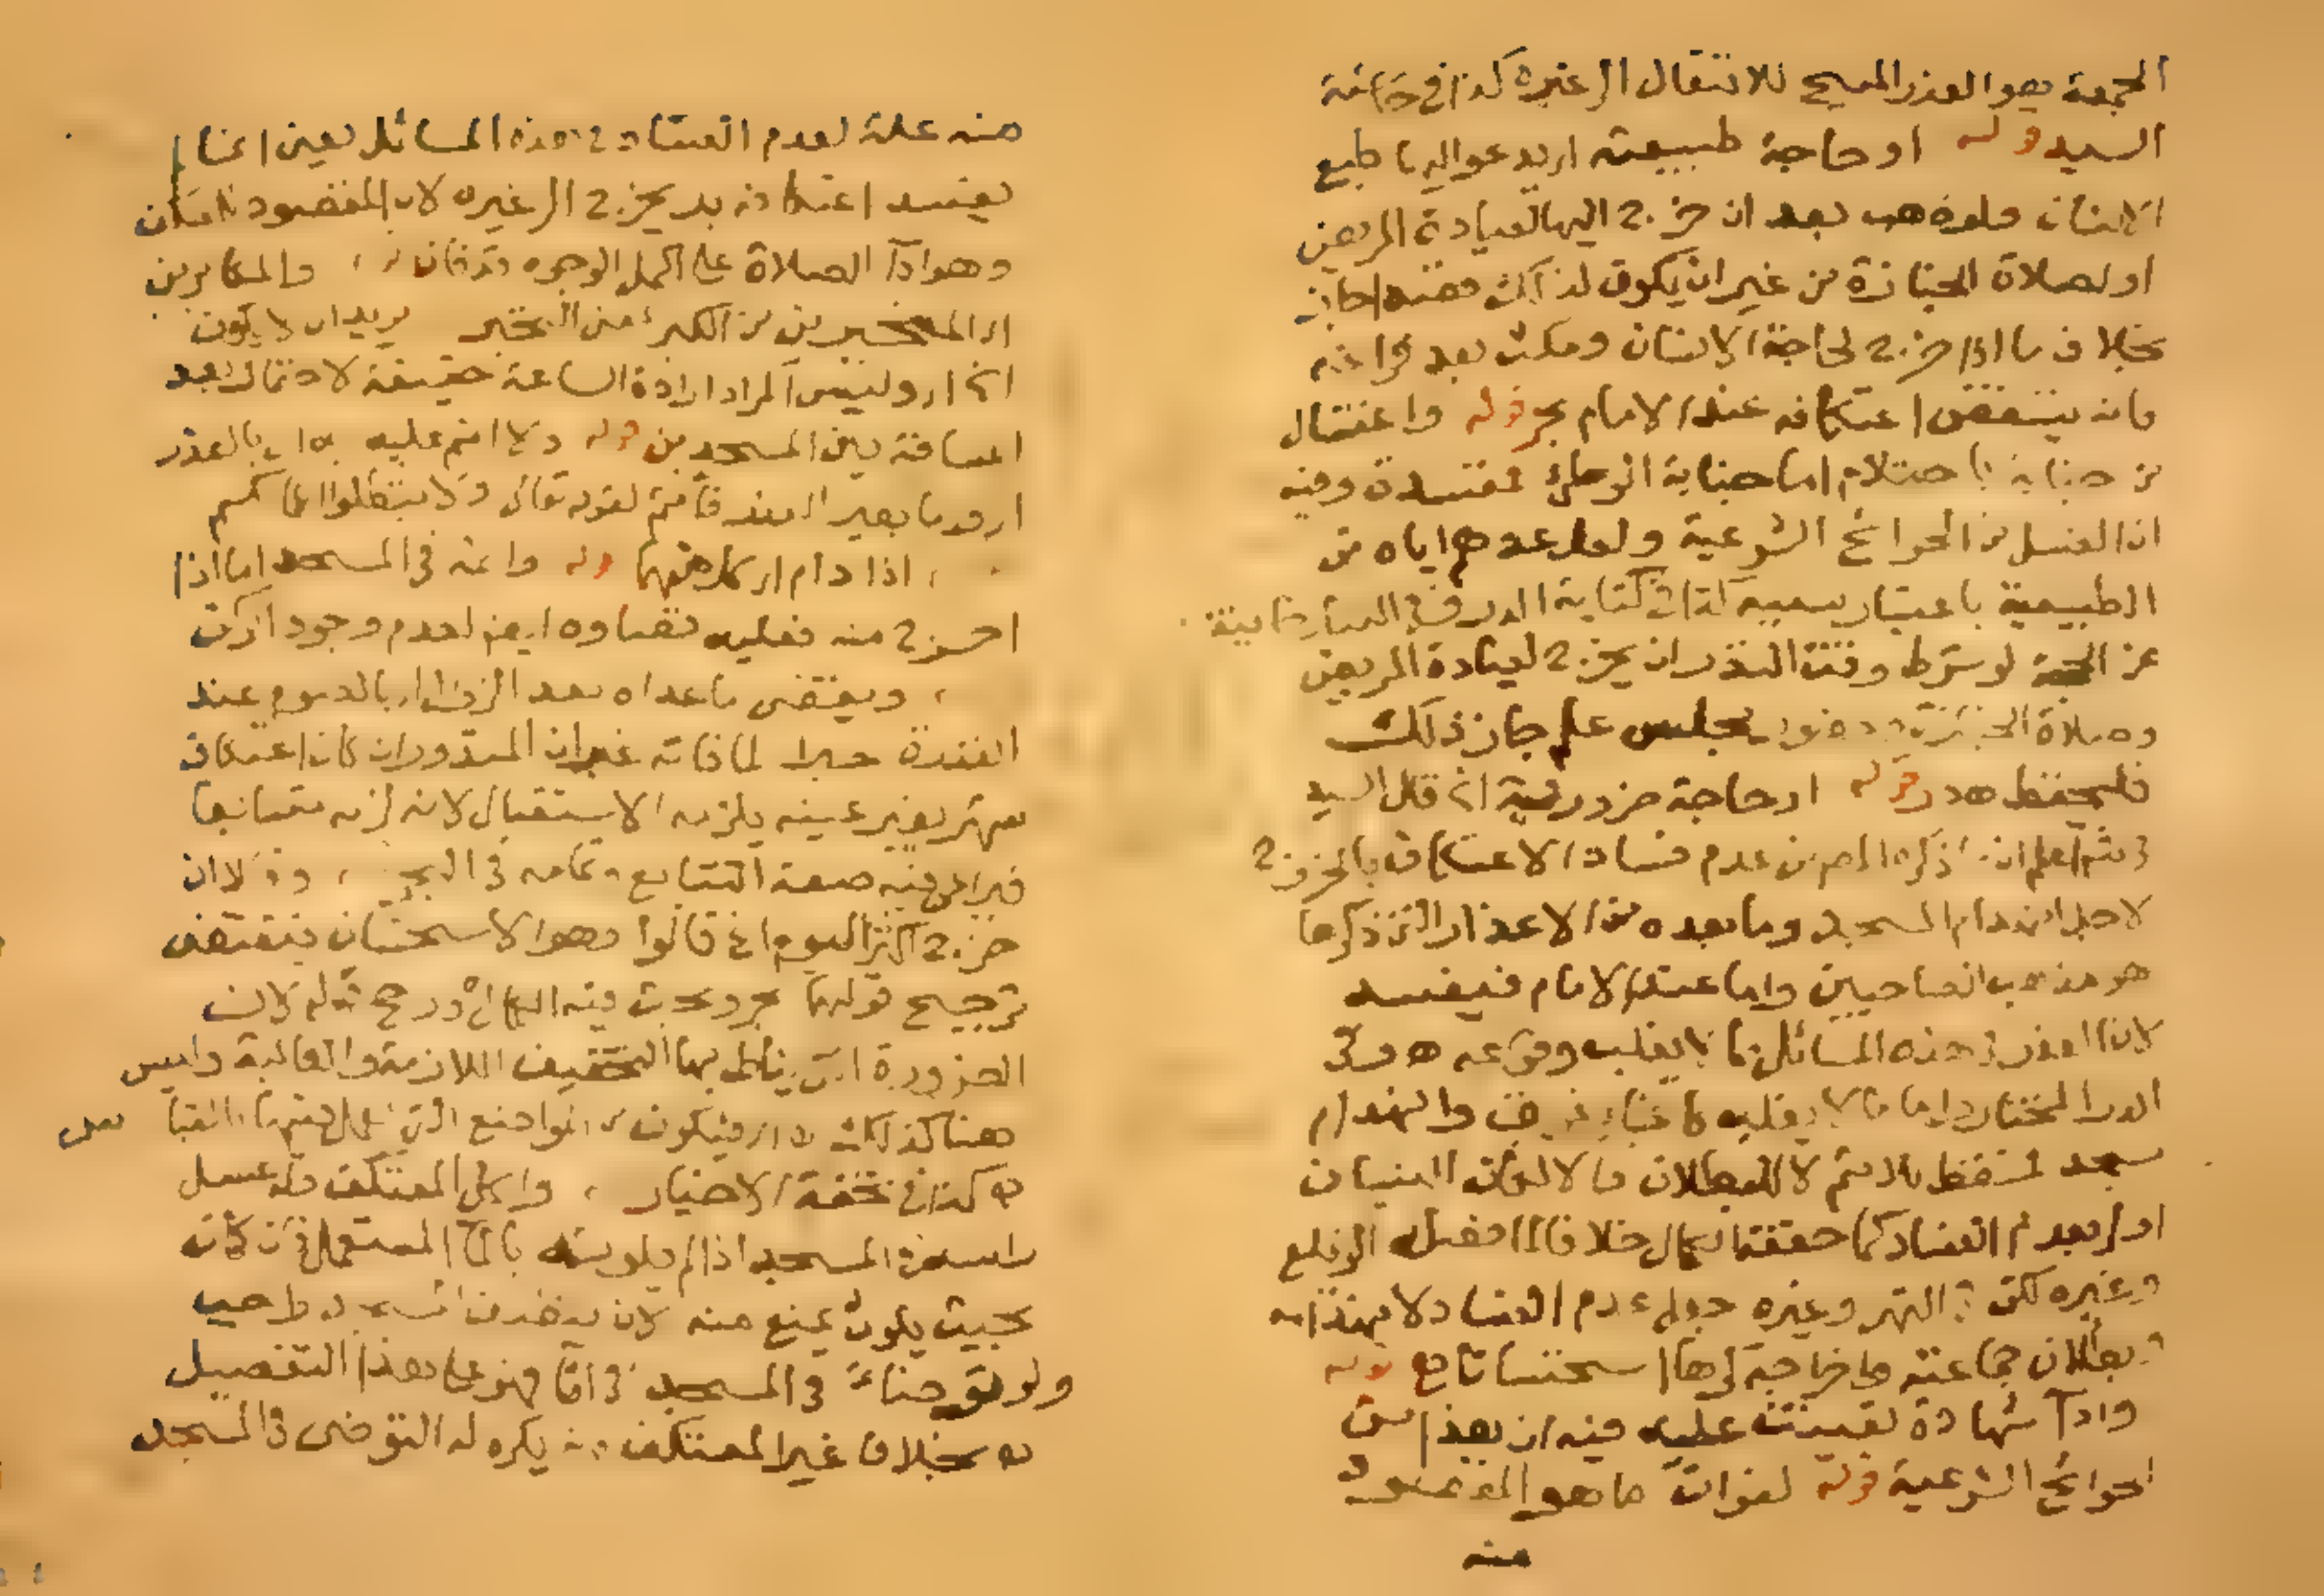 الجمعة هو العذر المبيح للانتقال الى غيره كذا في حاشية
السيد قوله او حاجة طبيعية اي يدعو اليها طبع
الانسان ولو ذهب بعد ان خرج اليها لعيادة المريض
او لصلاة الجنازة من غير ان يكون لذلك قصدا جاز
بخلاف ما اذا خرج لحاجة الانسان ومكث بعد فراغه
فانه ينتقض اعتكافه عند الامام بحر قوله واغتسال
من جنابة باحتلام اما جنابة الوطئ مفسدة وفيه
ان الغسل من الحوائج الشرعية ولعل عدهم اياه من
الطبيعية باعتبار سببه كذا في كتابة الدر وفي التتارخانية
عن الحجة لو شرط وقت النذر ان يخرج لعيادة المريض
وصلاة الجنازة وحضور مجلس علم جاز ذلك
فليحفظ در قوله او حاجة ضرورية الخ قال السيد
ثم اعلم ان ما ذكره المص من عدم فساد الاعتكاف بالخروج
لاجل انهدام المسجد وما بعده من الاعذار التي ذكرها
هو مذهب الصاحبين واما عند الامام فيفسد
لان العذر في هذه المسائل مما لا يغلب وقوعه وفي
الدر المختار واما ما لا يغلب كانجاء غريق وانهدام
مسجد فمسقط للاثم لا للبطلان والا لكان النسيان
اولى بعدم الفساد كما حققه الكمال خلافا لما فصله الزيلعي
وغيره لكن في النهر وغيره جعل عدم الفساد لانهدامه
وبطلان جماعته واخراجه كرها استحسانا قوله
واداء شهادة تعينت عليه فيه ان هذا من
الحوائج الشرعية قوله لفوات ما هو المقصود
منه
منه علة لعدم الفساد في هذه المسائل يعني انما لم
يفسد اعتكافه بل يخرج الى غيره لان المقصود
وهو اداء الصلاة على اكمل الوجوه قد فات والمكابرين
اي المتجبرين من الكبر يريد ان لا يكون
الخ اي وليس المراد ارادة الساعة حقيقة لاحتمال بعد
المسافة بين المسجدين قوله ولا اثم عليه به اي بالعذر
اي واما بغير العذر فآثم لقوله تعالى ولا تبطلوا اعمالكم
اذا دام اي كل منهما قوله واغمي في المسجد اما اذا
اخرج منه فعليه قضاؤه ايض لعدم وجود الركن
ويقضي ما عداه بعد الزوال بالصوم عند
القدرة جبرا لما فاته غير ان المنذور ان كان اعتكاف
شهر بغير عينه يلزمه الاستقبال لانه لزمه متتابعا
فيراعى فيه صفة التتابع وتمامه في البحر وقالا ان
خرج اكثر اليوم الخ قالوا وهو الاستحسان فيقتضي
ترجيح قولهما بحر وبحث فيه الكمال ورجح قوله لان
الضرورة التي يناط بها التخفيف اللازمة والغالبة وليس
هنا كذلك اي فيكون من المواضع التي العمل فيها بالقياس
كذا في تحفة الاخيار واكل المعتكف وله غسل
راسه في المسجد اذا لم يلوثه بالماء المستعمل فان كان
بحيث يلوث يمنع منه لان تنظيف المسجد واجب
ولو توضأ في المسجد في اناء فهو على هذا التفصيل
بخلاف غير المعتكف فانه يكره له التوضي في المسجد